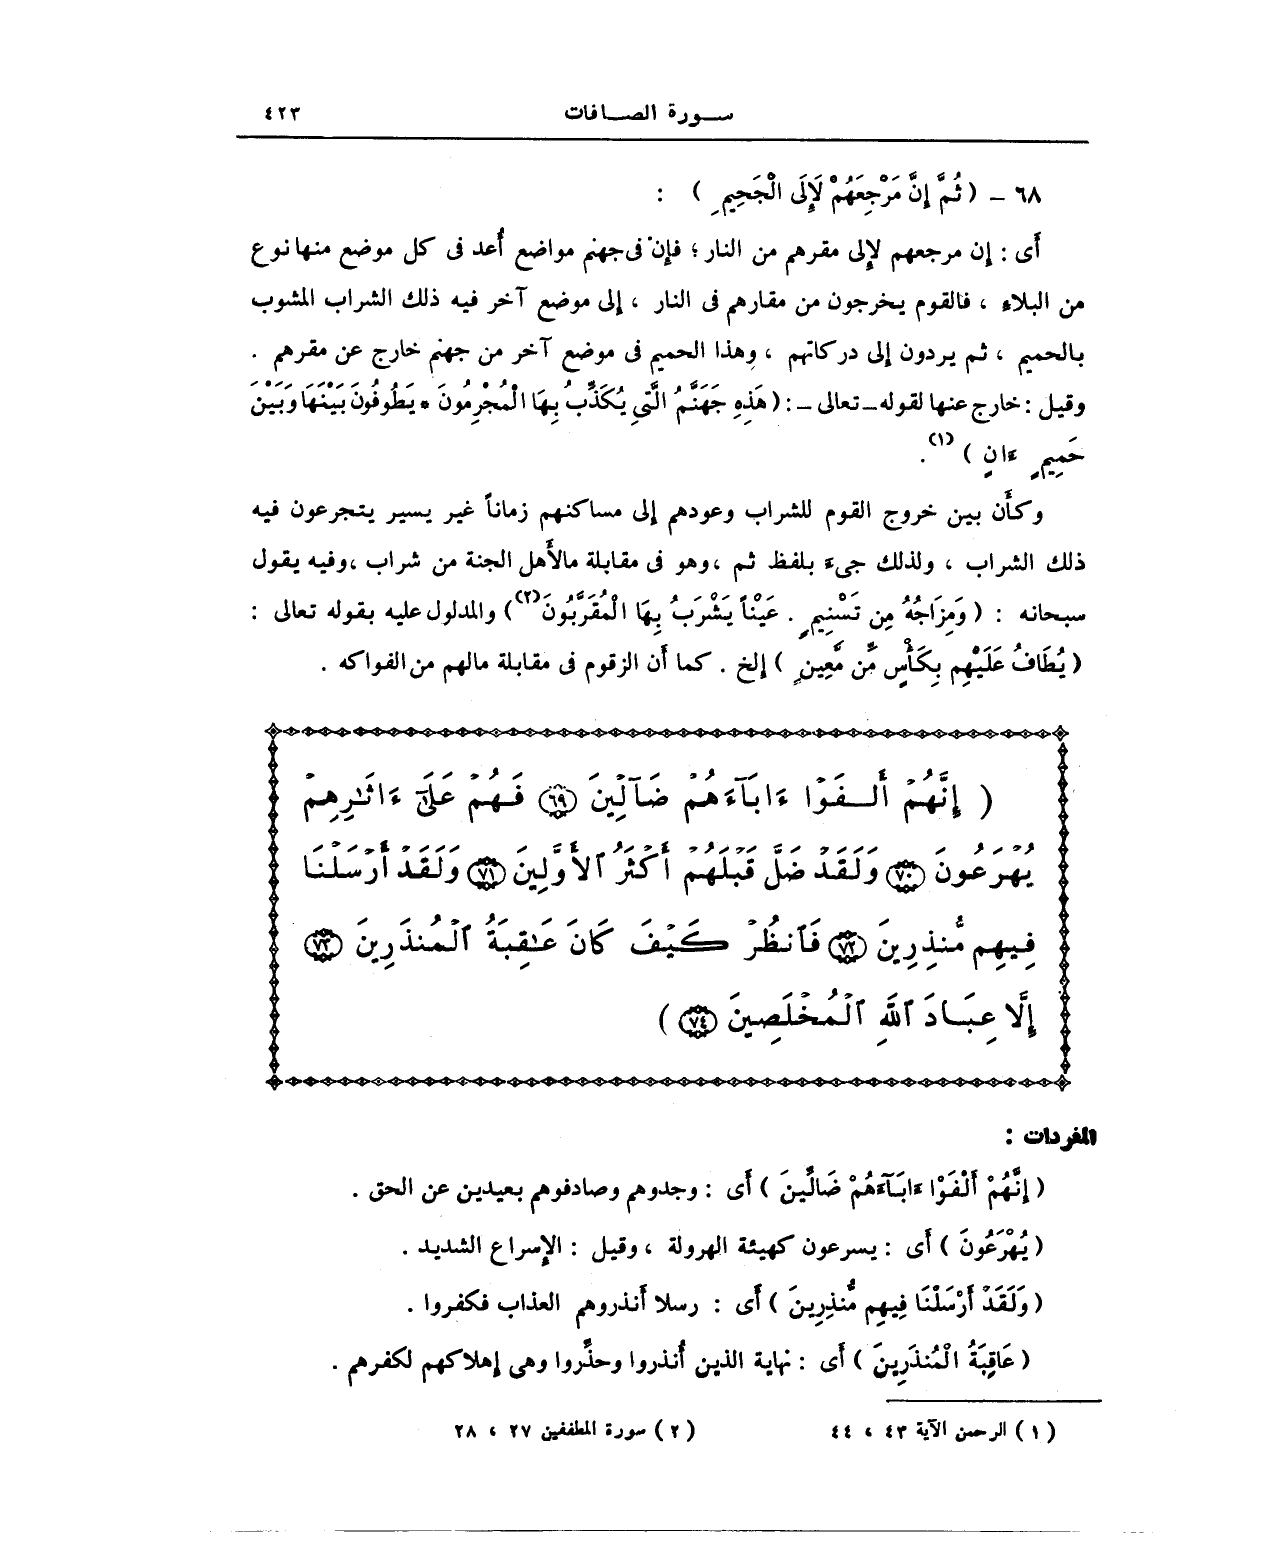 سـورة الصـافات ٤٢٣
٦٨ - ( ثُمَّ إِنَّ مَرْجِعَهُمْ لَإِلَى الْجَحِيمِ ) :
أَى : إن مرجعهم لإلى مقرهم من النار ؛ فإن فى جهنم مواضع أُعد فى كل موضع منها نوع
من البلاء ، فالقوم يخرجون من مقارهم فى النار ، إلى موضع آخر فيه ذلك الشراب المشوب
بالحميم ، ثم يردون إلى دركاتهم ، وهذا الحميم فى موضع آخر من جهنم خارج عن مقرهم .
وقيل : خارج عنها لقوله - تعالى - : ( هَذِهِ جَهَنَّمُ الَّتِي يُكَذِّبُ بِهَا الْمُجْرِمُونَ * يَطُوفُونَ بَيْنَهَا وَبَيْنَ
حَمِيمٍ ءَانٍ ) (١) .
وكأَن بين خروج القوم للشراب وعودهم إلى مساكنهم زماناً غير يسير يتجرعون فيه
ذلك الشراب ، ولذلك جىء بلفظ ثم ، وهو فى مقابلة مالأَهل الجنة من شراب ، وفيه يقول
سبحانه : ( وَمِزَاجُهُ مِن تَسْنِيمٍ . عَيْناً يَشْرَبُ بِهَا الْمُقَرَّبُونَ (٢) ) والمدلول عليه بقوله تعالى :
( يُطَافُ عَلَيْهِم بِكَأْسٍ مِّن مَّعِينٍ ) إلخ . كما أَن الزقوم فى مقابلة مالهم من الفواكه .
( إِنَّهُمْ أَلْفَوْا ءَابَآءَهُمْ ضَآلِّينَ ٦٩ فَهُمْ عَلَىٰٓ ءَاثَٰرِهِمْ
يُهْرَعُونَ ٧٠ وَلَقَدْ ضَلَّ قَبْلَهُمْ أَكْثَرُ ٱلْأَوَّلِينَ ٧١ وَلَقَدْ أَرْسَلْنَا
فِيهِم مُّنذِرِينَ ٧٢ فَٱنظُرْ كَيْفَ كَانَ عَٰقِبَةُ ٱلْمُنذَرِينَ ٧٣
إِلَّا عِبَادَ ٱللَّهِ ٱلْمُخْلَصِينَ ٧٤ )
المفردات :
( إِنَّهُمْ أَلْفَوْا ءَابَآءَهُمْ ضَالِّينَ ) أَى : وجدوهم وصادفوهم بعيدين عن الحق .
( يُهْرَعُونَ ) أَى : يسرعون كهيئة الهرولة ، وقيل : الإسراع الشديد .
( وَلَقَدْ أَرْسَلْنَا فِيهِم مُّنذِرِينَ ) أَى : رسلا أَنذروهم العذاب فكفروا .
( عَاقِبَةُ الْمُنذَرِينَ ) أَى : نهاية الذين أُنذروا وحذَّروا وهى إهلاكهم لكفرهم .
( ١ ) الرحمن الآية ٤٣ ، ٤٤ ( ٢ ) سورة المطففين ٢٧ ، ٢٨